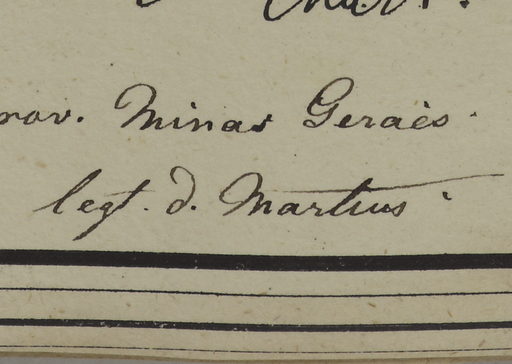 Mart.
rov. Minas Geraës.
legt. d. Martius.